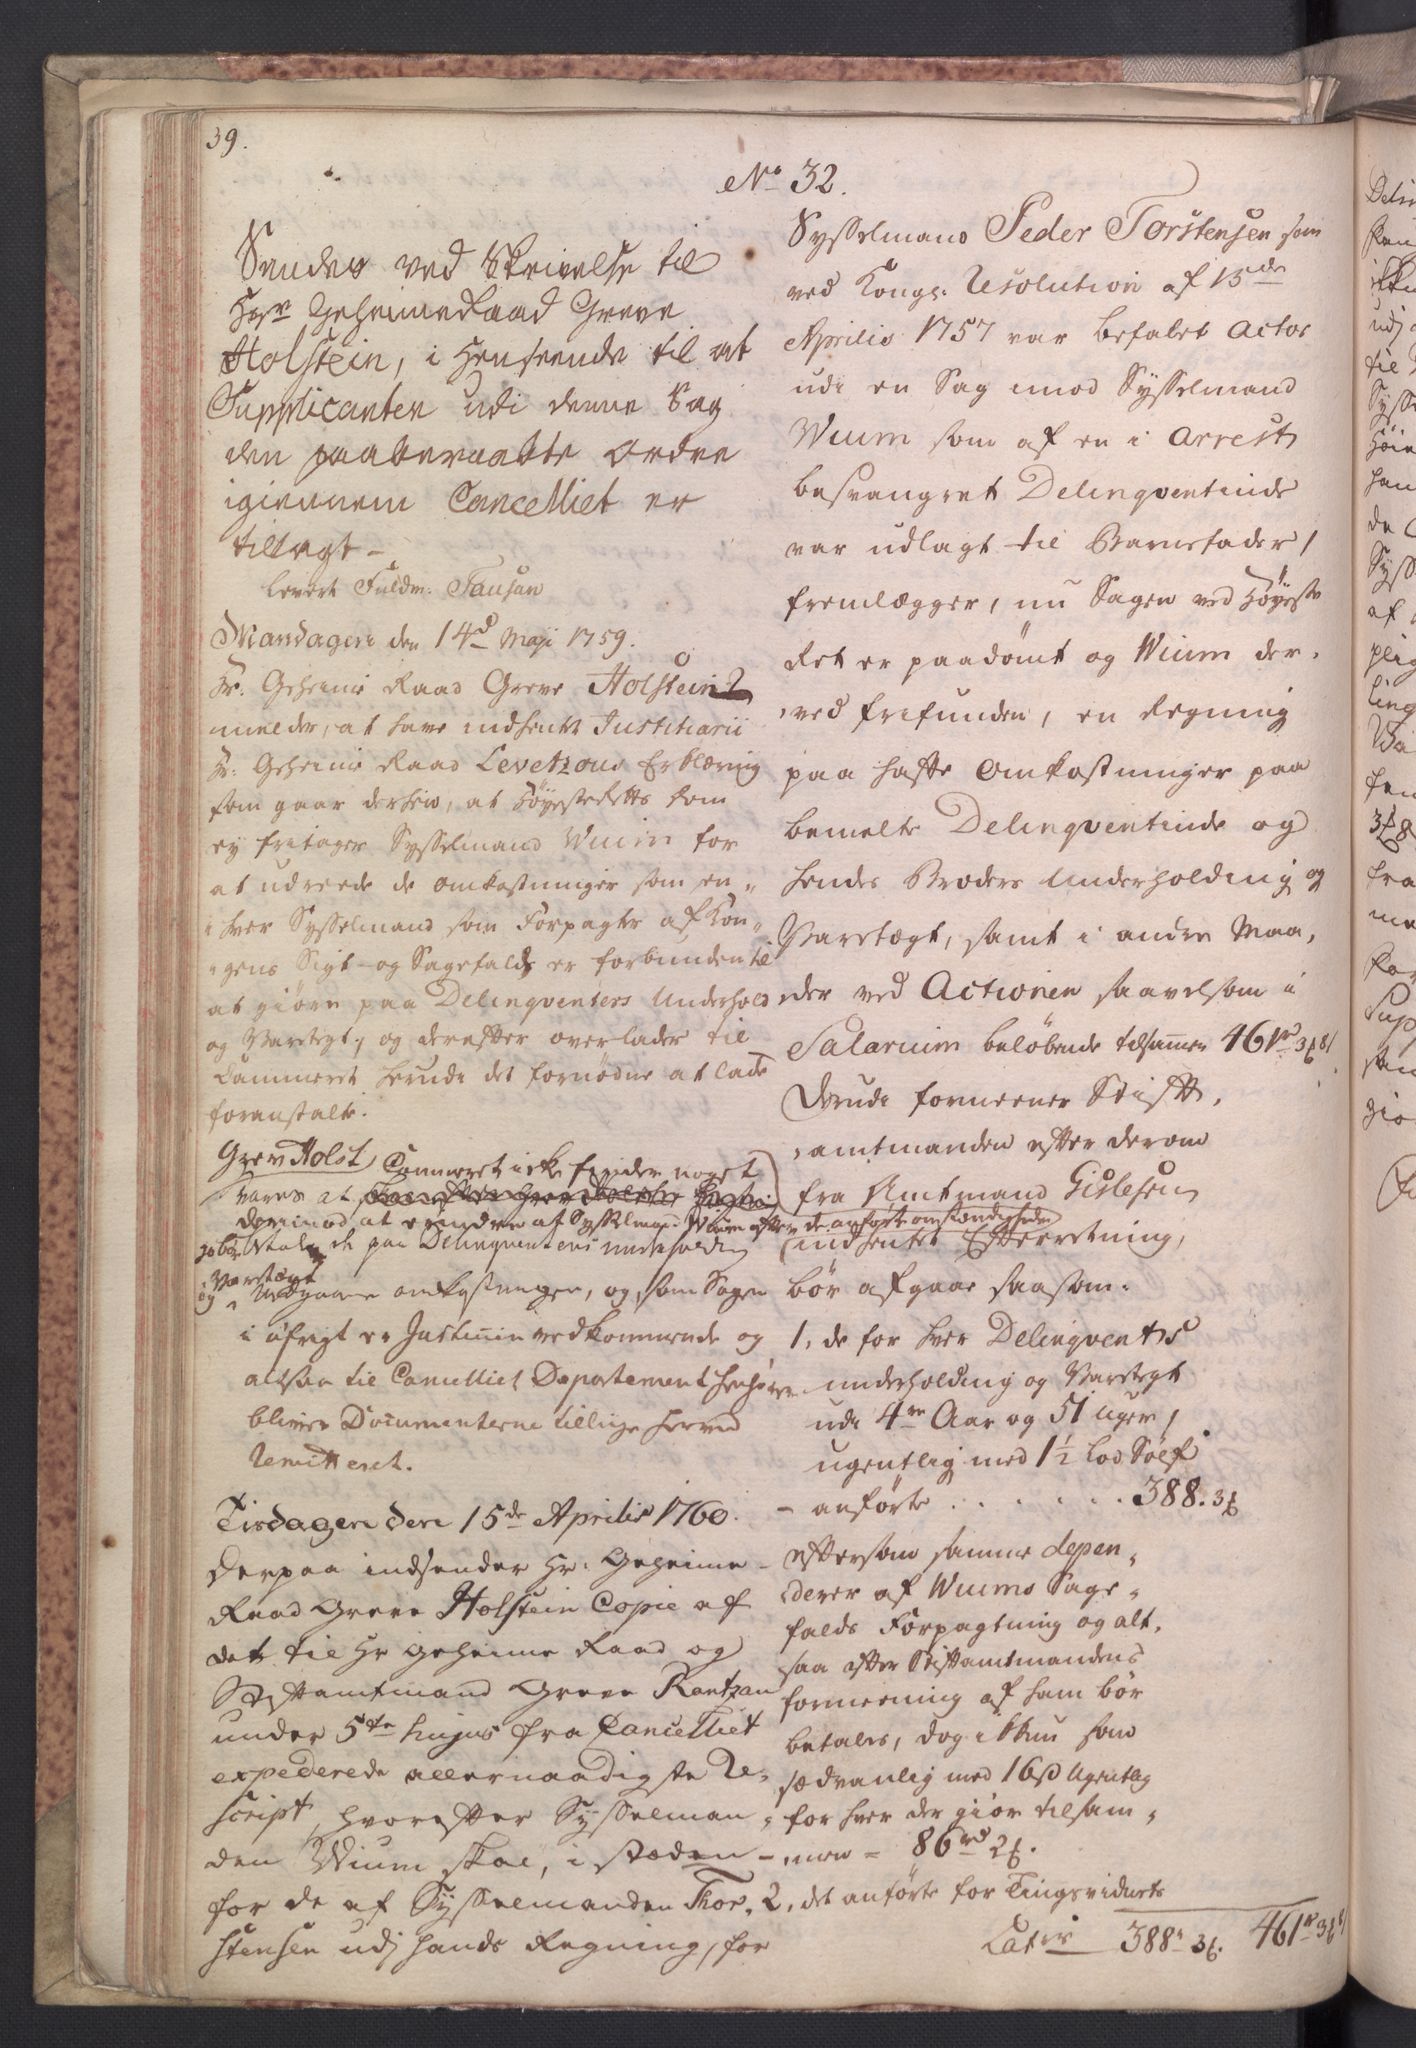 39.
No 32.
Sendes ved Skrivelse til
Hgr GeheimeRaad Greve
Holstein, i Henseende til at
Supplicanten udi denne Sag
den paaberaabte Ordre
igiennem Cancelliet er
tillagt –
levert Fuldm: Tausan
Mandagen den 14d Maji 1759.
Hr. Geheime Raad Greve Holstein
melder, at have indhentet Justitiarii
Hr: Geheime Raad Levetzous Erklæring
som gaar derhen, at Høyeste Retts Dom
ey fritager Sysselmand Wium for
at udreede de Omkostninger som en,,
,,hver Sysselmand som Forpagter af Kon,,
,,gens Sigt- og Sagefalds er forbunden til
at giøre paa Delinqventers Underhold
og Varetegt, og derefter overlader til
Cammeret herudi det fornødne at lade
foranstalte.
Grev Holst. Cammeret icke finder noget
derimod at erindre at Sysselmand Wium efter de anførte omstændigheder
bør betale de paa Delinqventens underholding
og Varetægt
udgaaende omkostninger, og som Sagen
i øfrigt er Justicien vedkommende og
altsaa til Cancelliet Departement henhører
bliver Documenterne tillige herved
remitteret.
Tisdagen den 15de Aprilis 1760.
Derpaa indsender Hr. Geheime
Raad Greve Holstein Copie af
det til Hr Geheime Raad og
Stiftamtmand Greve Rantzau
under 5te hujus fra Cancelliet
expederede allernaadigste Re,
script, hvorefter Sysselman,,
den Wium skal, i stæden
for de af Sysselmanden Thor,
stensen udi hands Regning, for
Sysselmand Peder Torstensen som
ved Kongl: Resolution af 15de
Aprilis 1757 var befalet Actor
udi en Sag imod Sysselmand
Wium som af en i Arrest
besvangret Delinqventinde
var udlagt til Barnefader,
fremlægger, nu Sagen ved Høyeste
Ret er paadømt og Wium der,
,ved frifunden, en Regning
paa hafte Omkostninger paa
bemelte Delinqventinde og
hendes Broders Underholding og
Varetægt, samt i andre Maa,
,der ved Actionen saavelsom i
Salarium beløbende tilsammen 461r 3ß 8/
Derudi formeener Stift,
,amtmanden efter derom
fra Amtmand Gislesen
indhentet Efterretning,
bør afgaae saasom:
1, de for hver Delinqvents
underholding og Varetegt
udi 4re Aar og 51 uger,
ugentlig med 1½ lod Sølf
– anførte . . . . . . 388. 3ß
eftersom samme depen,,
,derer af Wiums Sage,,
falds Forpagtning og alt,
saa efter Stiftamtmandens
formeening af ham bør
betales, dog ikkun som
sædvanlig med 16ß Ugentlig
for hver der giør tilsam,,
,,men = 86rd 2ß.
2, det anførte for Tingsvidnets
Lateris 388r 3ß. 461r 3ß 8/